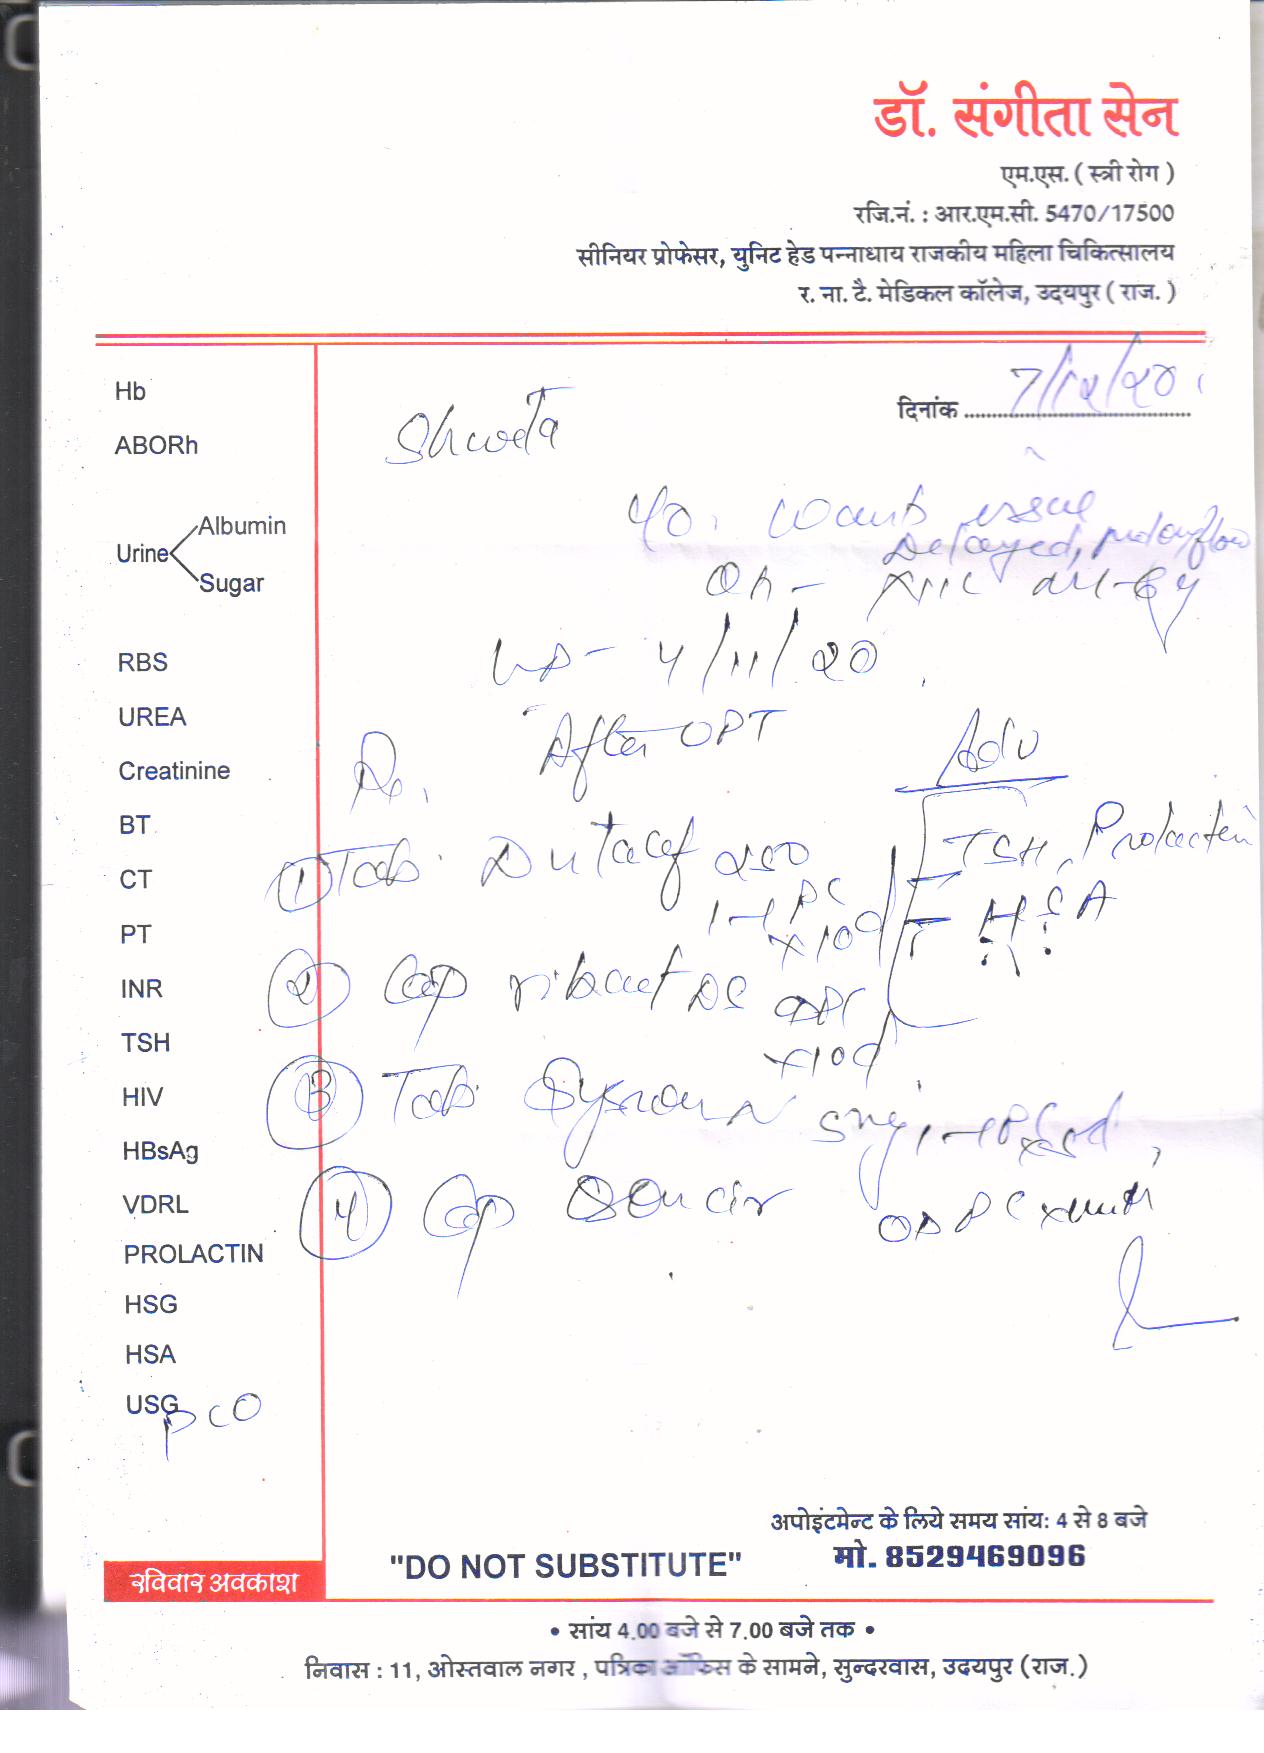 डॉ. संगीता सेन
एम.एस. ( स्त्री रोग )
रजि.नं. : आर.एम.सी. 5470/17500
सीनियर प्रोफेसर, युनिट हेड पन्नाधाय राजकीय महिला चिकित्सालय
र. ना. टै. मेडिकल कॉलेज, उदयपुर ( राज. )
दिनांक 7/12/20
Shweta
wants issue
Delayed,
4/11/20
After UPT
Rx
Adv
TSH, Prolactin
HSA
1) Tab. 250
1-1 PC
x10d
2) Cap DS OD PC
x10d
3) Tab. 5mg 1-1 PC x5d
4) Cap OD PC x
Hb
ABORh
Urine Albumin
Sugar
RBS
UREA
Creatinine
BT
CT
PT
INR
TSH
HIV
HBsAg
VDRL
PROLACTIN
HSG
HSA
USG
PCO
अपोइंटमेन्ट के लिये समय सांय: 4 से 8 बजे
"DO NOT SUBSTITUTE" मो. 8529469096
रविवार अवकाश
• सांय 4.00 बजे से 7.00 बजे तक •
निवास : 11, ओस्तवाल नगर , पत्रिका ऑफिस के सामने, सुन्दरवास, उदयपुर (राज.)